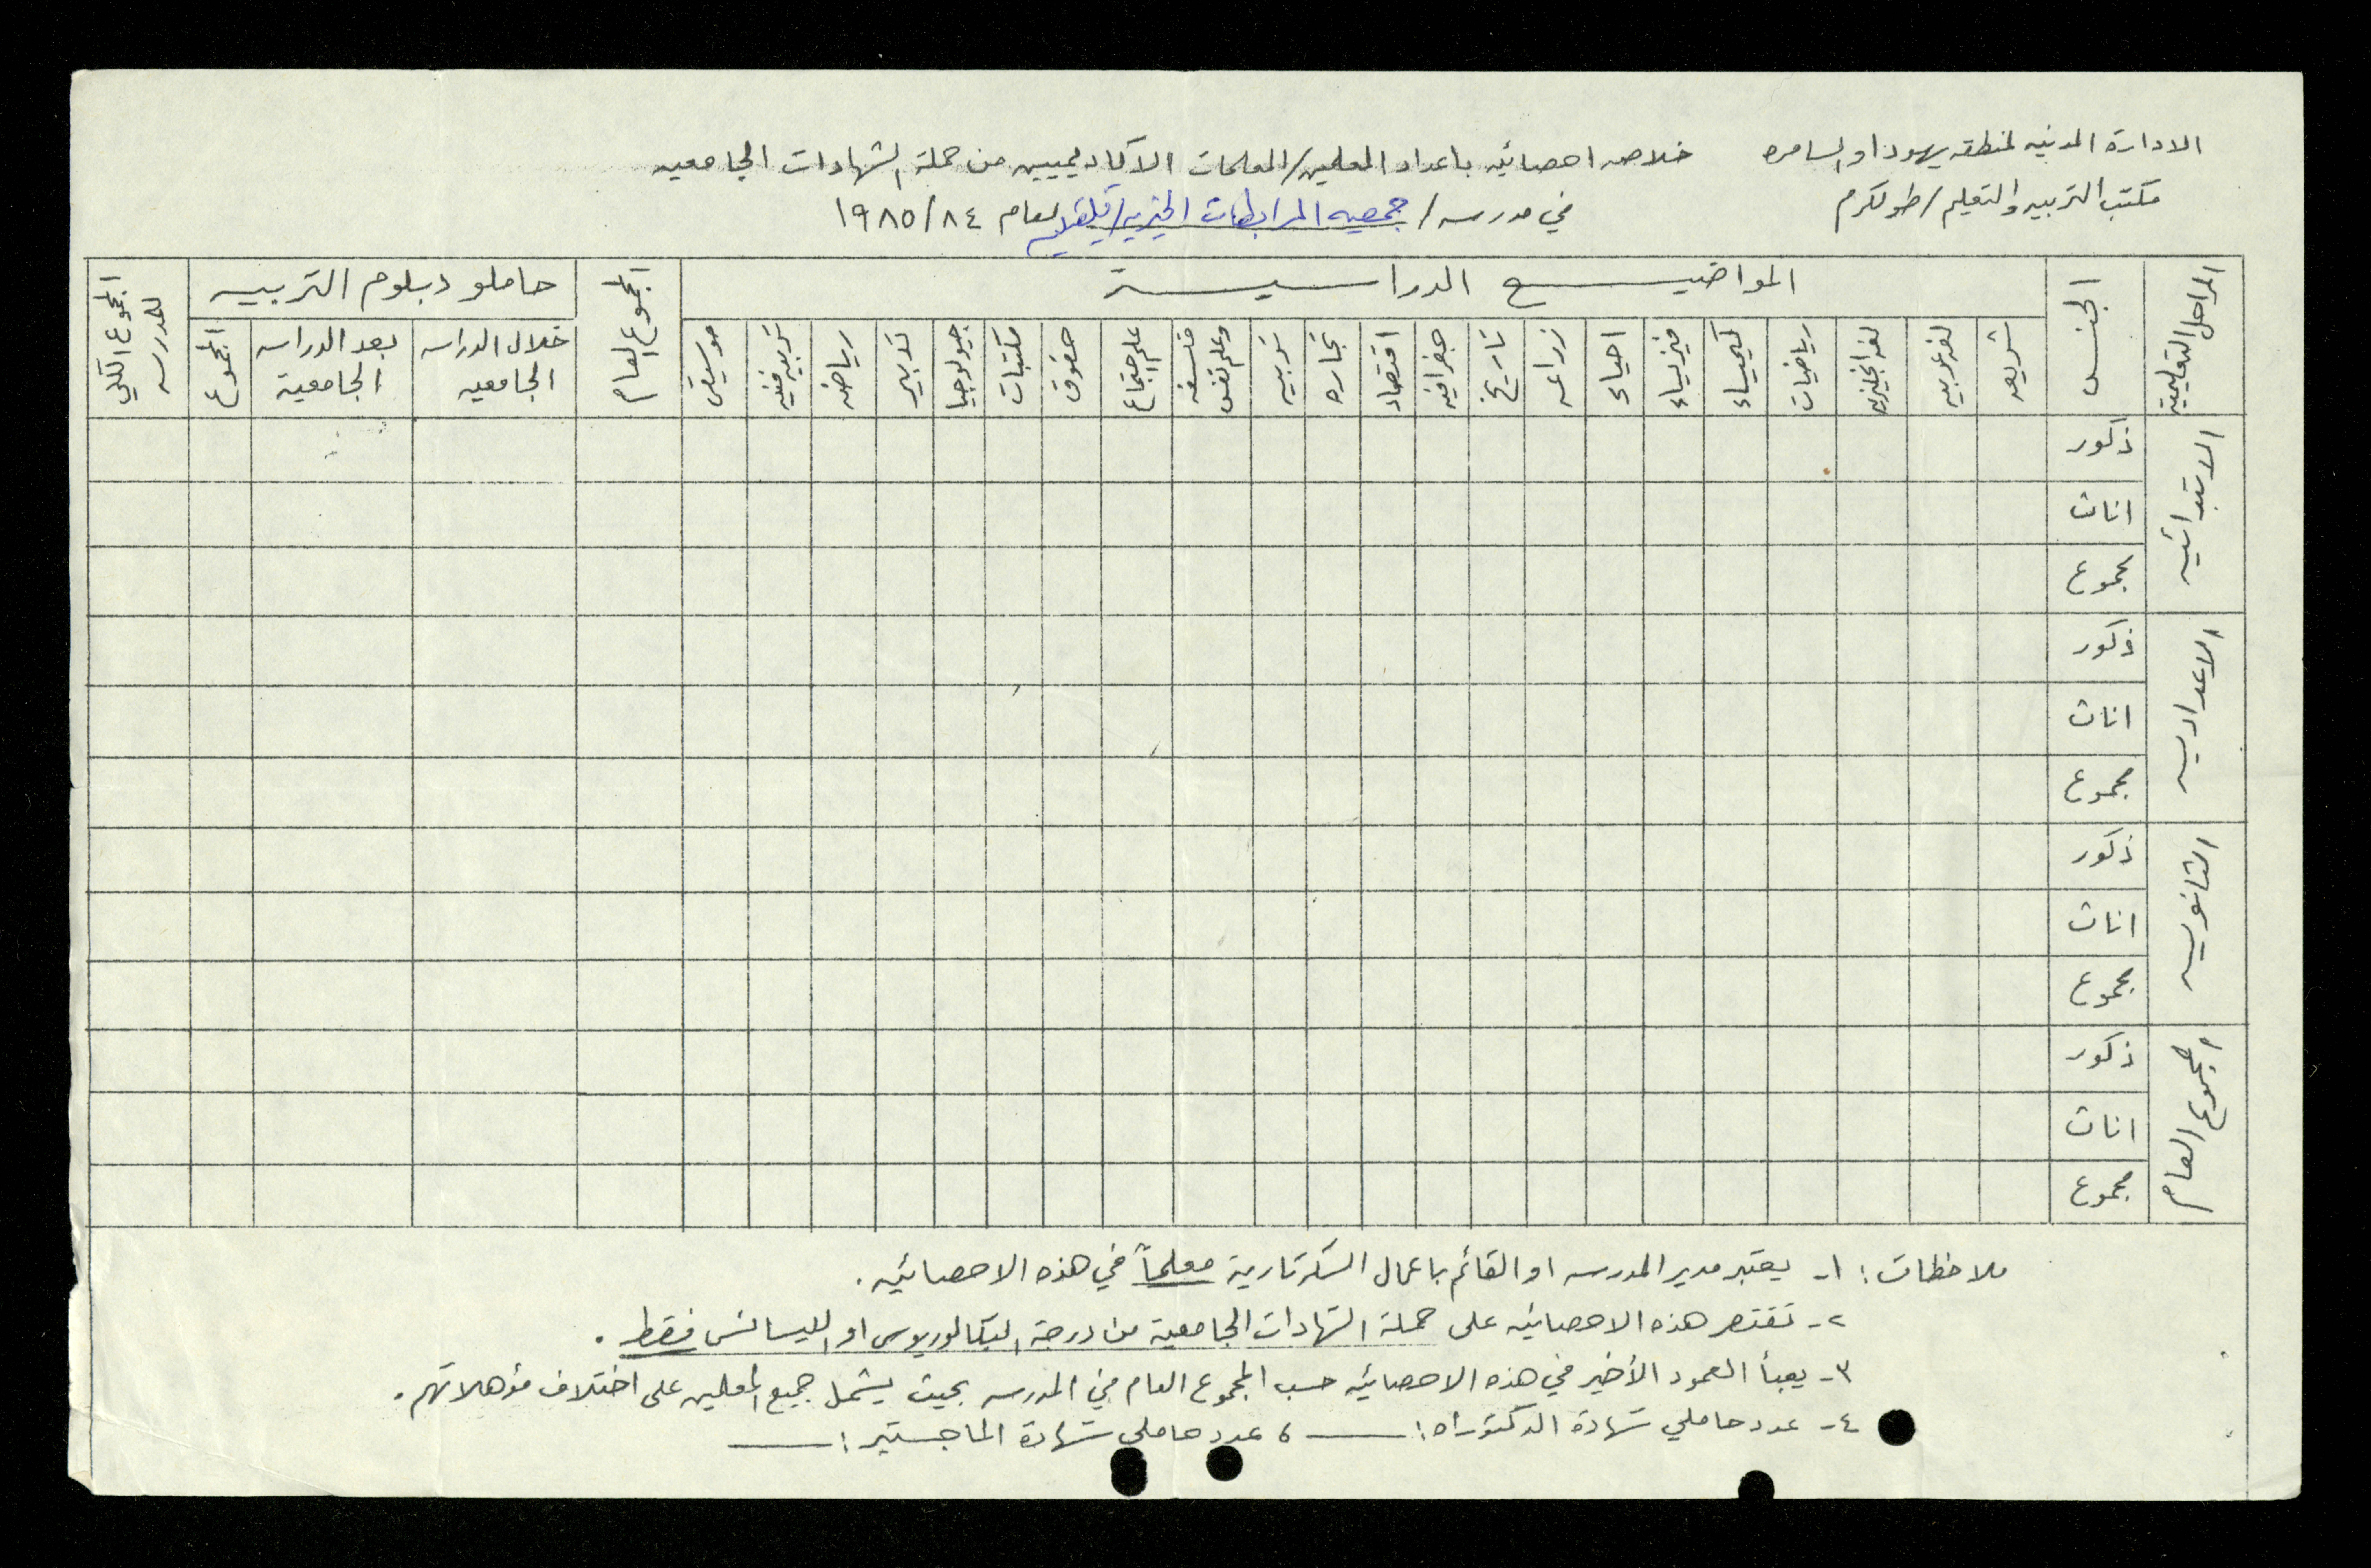 الادارة المدنيه لمنطقه يهودا والسامره
مكتب التربيه والتعليم / طولكرم
خلاصه احصائيه باعداد المعلمين/المعلمات الاكاديميين من حملة الشهادات الجامعيه
في مدرسه / جمعيه المرابطات الخيريه/قلقيليه لعام ١٩٨٥/٨٤
المراحل التعليمية
الجنس
المواضيع الدراسية
المجموع العام
حاملو دبلوم التربيه
المجموع الكلي للمدرسه
شريعه
لغه عربيه
لغه انجليزيه
رياضيات
كيمياء
فيزياء
احياء
زراعه
تاريخ
جغرافيه
اقتصاد
تجاره
تربيه
فلسفه وعلم نفس
علم اجتماع
حقوق
مكتبات
جيولوجيا
تدبير
رياضه
تربيه فنيه
موسيقى
خلال الدراسه الجامعيه
بعد الدراسه الجامعية
المجموع
الابتدائيه
ذكور
اناث
مجموع
الاعداديه
ذكور
اناث
مجموع
الثانويه
ذكور
اناث
مجموع
المجموع العام
ذكور
اناث
مجموع
ملاحظات : ١- يعتبر مدير المدرسه او القائم باعمال السكرتارية معلماً في هذه الاحصائيه .
٢- تقتصر هذه الاحصائيه على حملة الشهادات الجامعية من درجة البكالوريوس او الليسانس فقط .
٣- يعبأ العمود الأخير في هذه الاحصائيه حسب المجموع العام في المدرسه بحيث يشمل جميع المعلمين على اختلاف مؤهلاتهم .
٤- عدد حاملي شهادة الدكتوراه : ــــــ ، عدد حاملي شهادة الماجستير : ــــــ